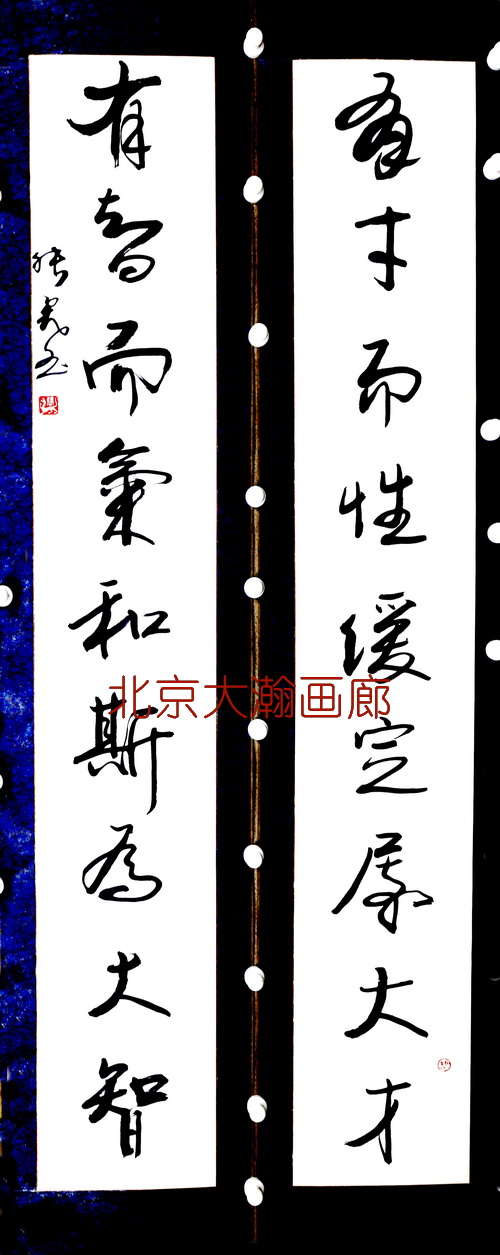 有才而性緩定屬大才
有智而氣和斯為大智
北京大瀚画廊